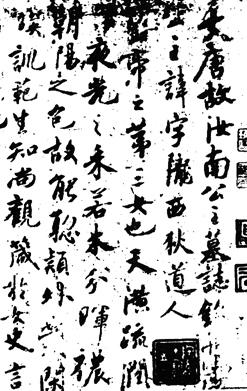 大唐故汝南公主墓誌銘并序
公主諱字隴西狄道人
皇帝之第三女也天潢疏潤
夜光之采若木分暉穠
朝陽之色故能聰穎外
訓範生知尚觀箴於女史言